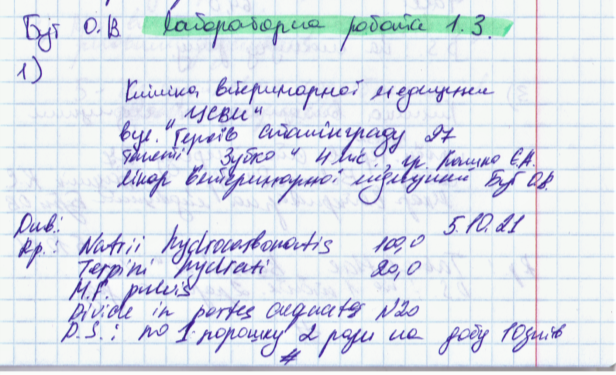 Бут О.В Лабораторна робота 1.3.
1)
Клініка ветеринарної медицини
"ЦСВМ"
вул. Героїв Сталінграду 27
"Зубко" 4 міс., гр. Є.А.
лікар ветеринарної медицини Бут О.В.
5.10.21
Rp.: Natrii hydrocarbonatis 100,0
Terpini hydrati 20,0
M.F. pulvis
Divide in partes aequales N20
D.S.: по 1 порошку 2 рази на добу 10 днів
#